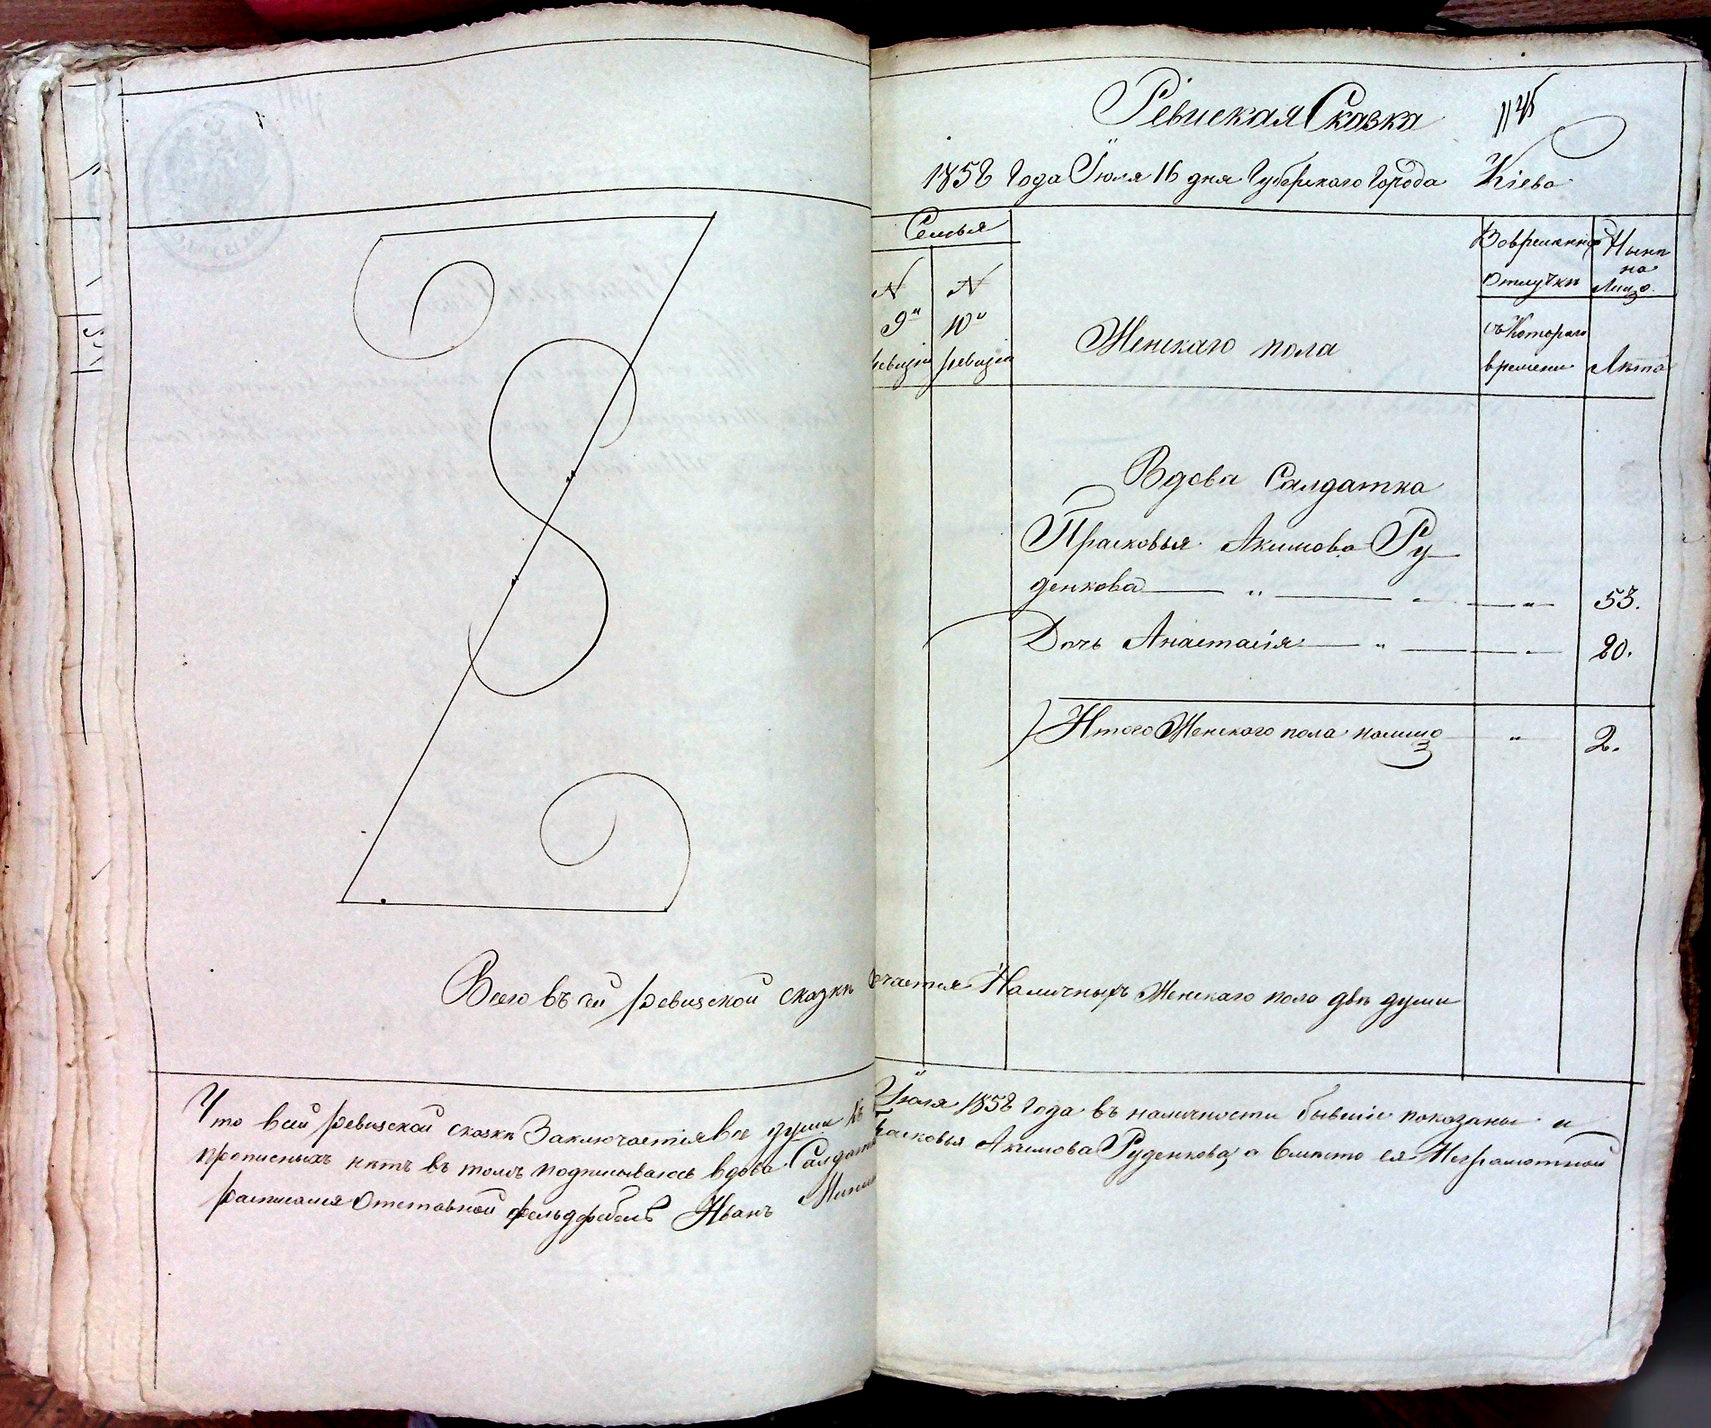 Ревиская Сказка
1858 года Іюля 16 дня Губерскаго города Кіева
Семья
N N
9й 10й
ревизіи ревизіи
Женскаго пола
Во временной отлучки
съ котораго времени
Ныне на лицо
Лѣта
Вдова Салдатка
Прасковья Акимова Ру
денкова — " — " — 53.
Дочь Анастасія — " — " — 20.
Итого Женского пола налицо " 2.
Всего въ сей ревизской сказки Наличныхъ Женскаго пола две души
Что всей ревизской сказки Заключается все души Іюля 1858 года въ наличности бывшіе показаны и
прописныхъ нетъ въ томъ подписываюсь вдова Салдатка Прасковья Акимова Руденкова, а вместо ея Неграмотной
расписался отставной фельдфебель Иванъ